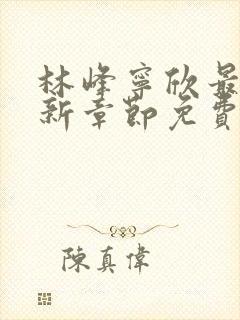 林峰寧欣最
新章節免費
陳真偉